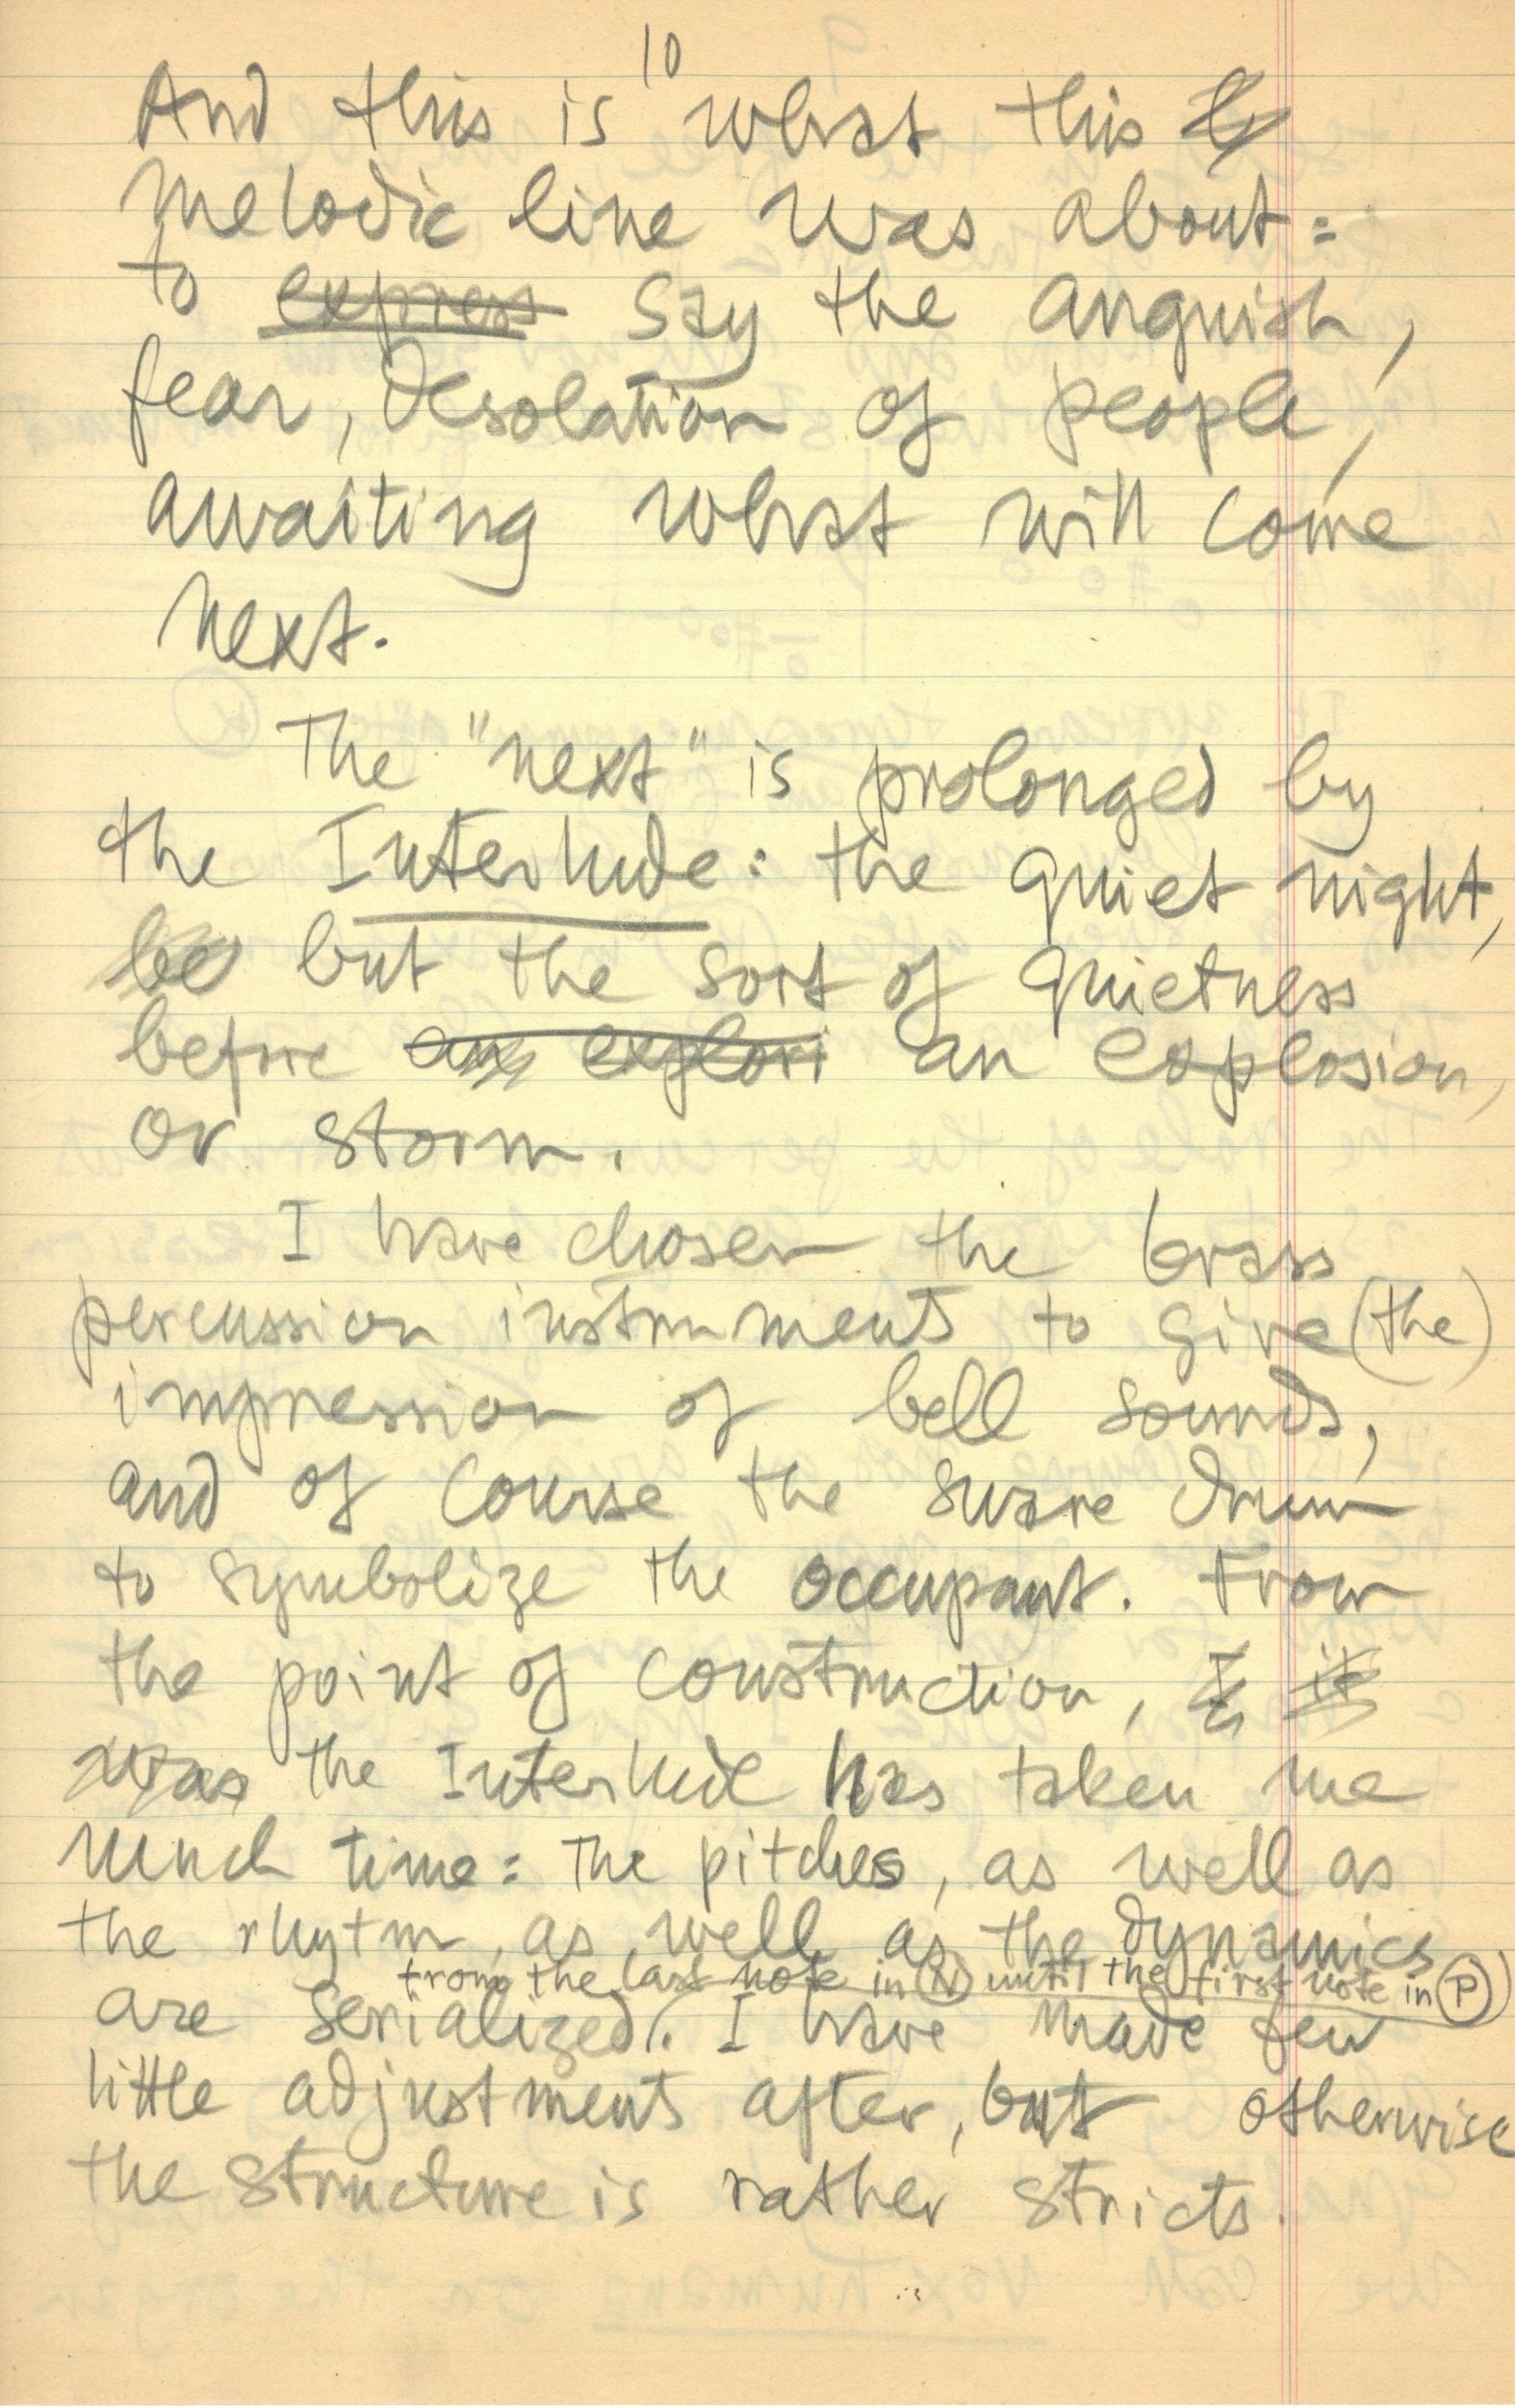 10
And this is what this
melodic line was about:
to express say the anguish,
fear, desolation of people,
awaiting what will come
next.
The "next" is prolonged by
the Interlude: the quiet night,
be but the sort of quietness
before an explosi an explosion,
or storm.
I have chosen the brass
percussion instruments to give (the)
impression of bell sounds,
and of course the snare drum
to symbolize the occupant. From
the point of construction, I it
was the Interlude has taken me
much time: the pitches, as well as
the rhytm, as well as the dynamics
from the last note in (N) until the first note in (P))
are serialized. (I have made few
little adjustments after, but otherwise
the structure is rather stricts.